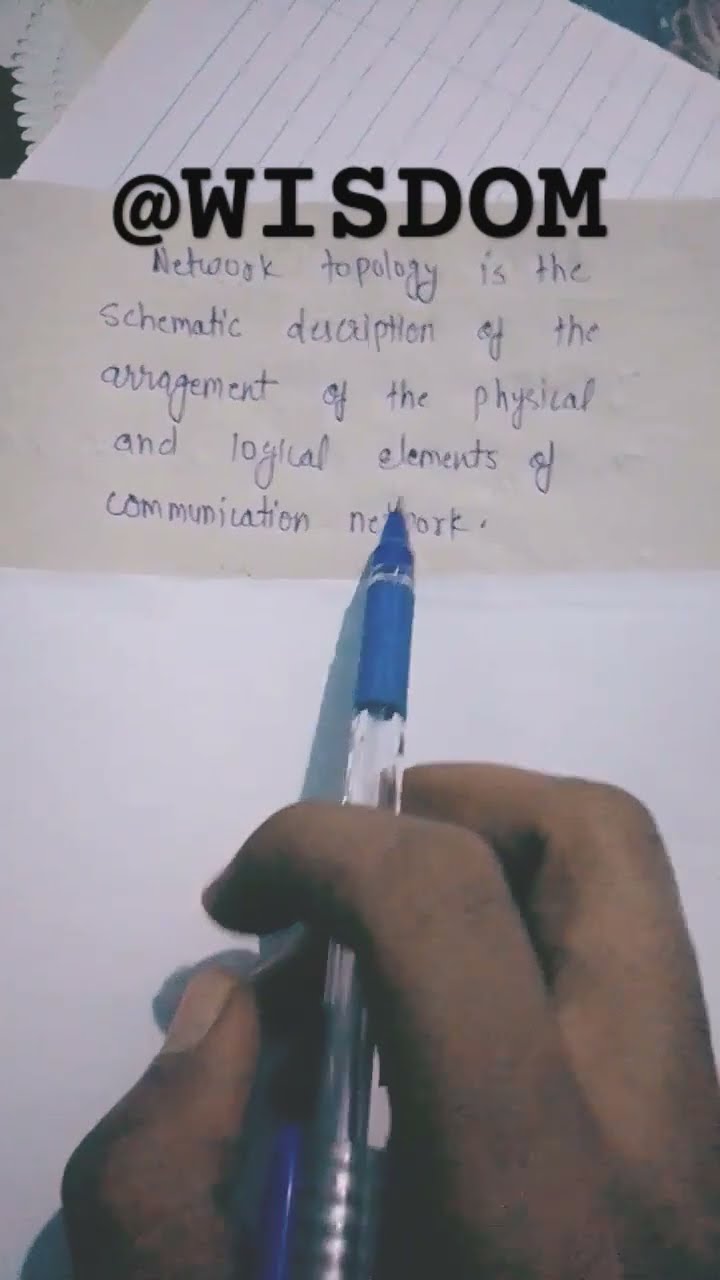 @WISDOM
Network topology is the
schematic description of the
arragement of the physical
and logical elements of
communication network.